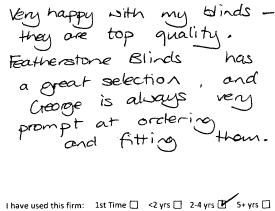 Very happy with my blinds –
they are top quality.
Featherstone Blinds has
a great selection, and
George is always very
prompt at ordering
and fitting them.
I have used this firm: 1st Time ☐ <2 yrs ☐ 2-4 yrs ☑ 5+ yrs ☐